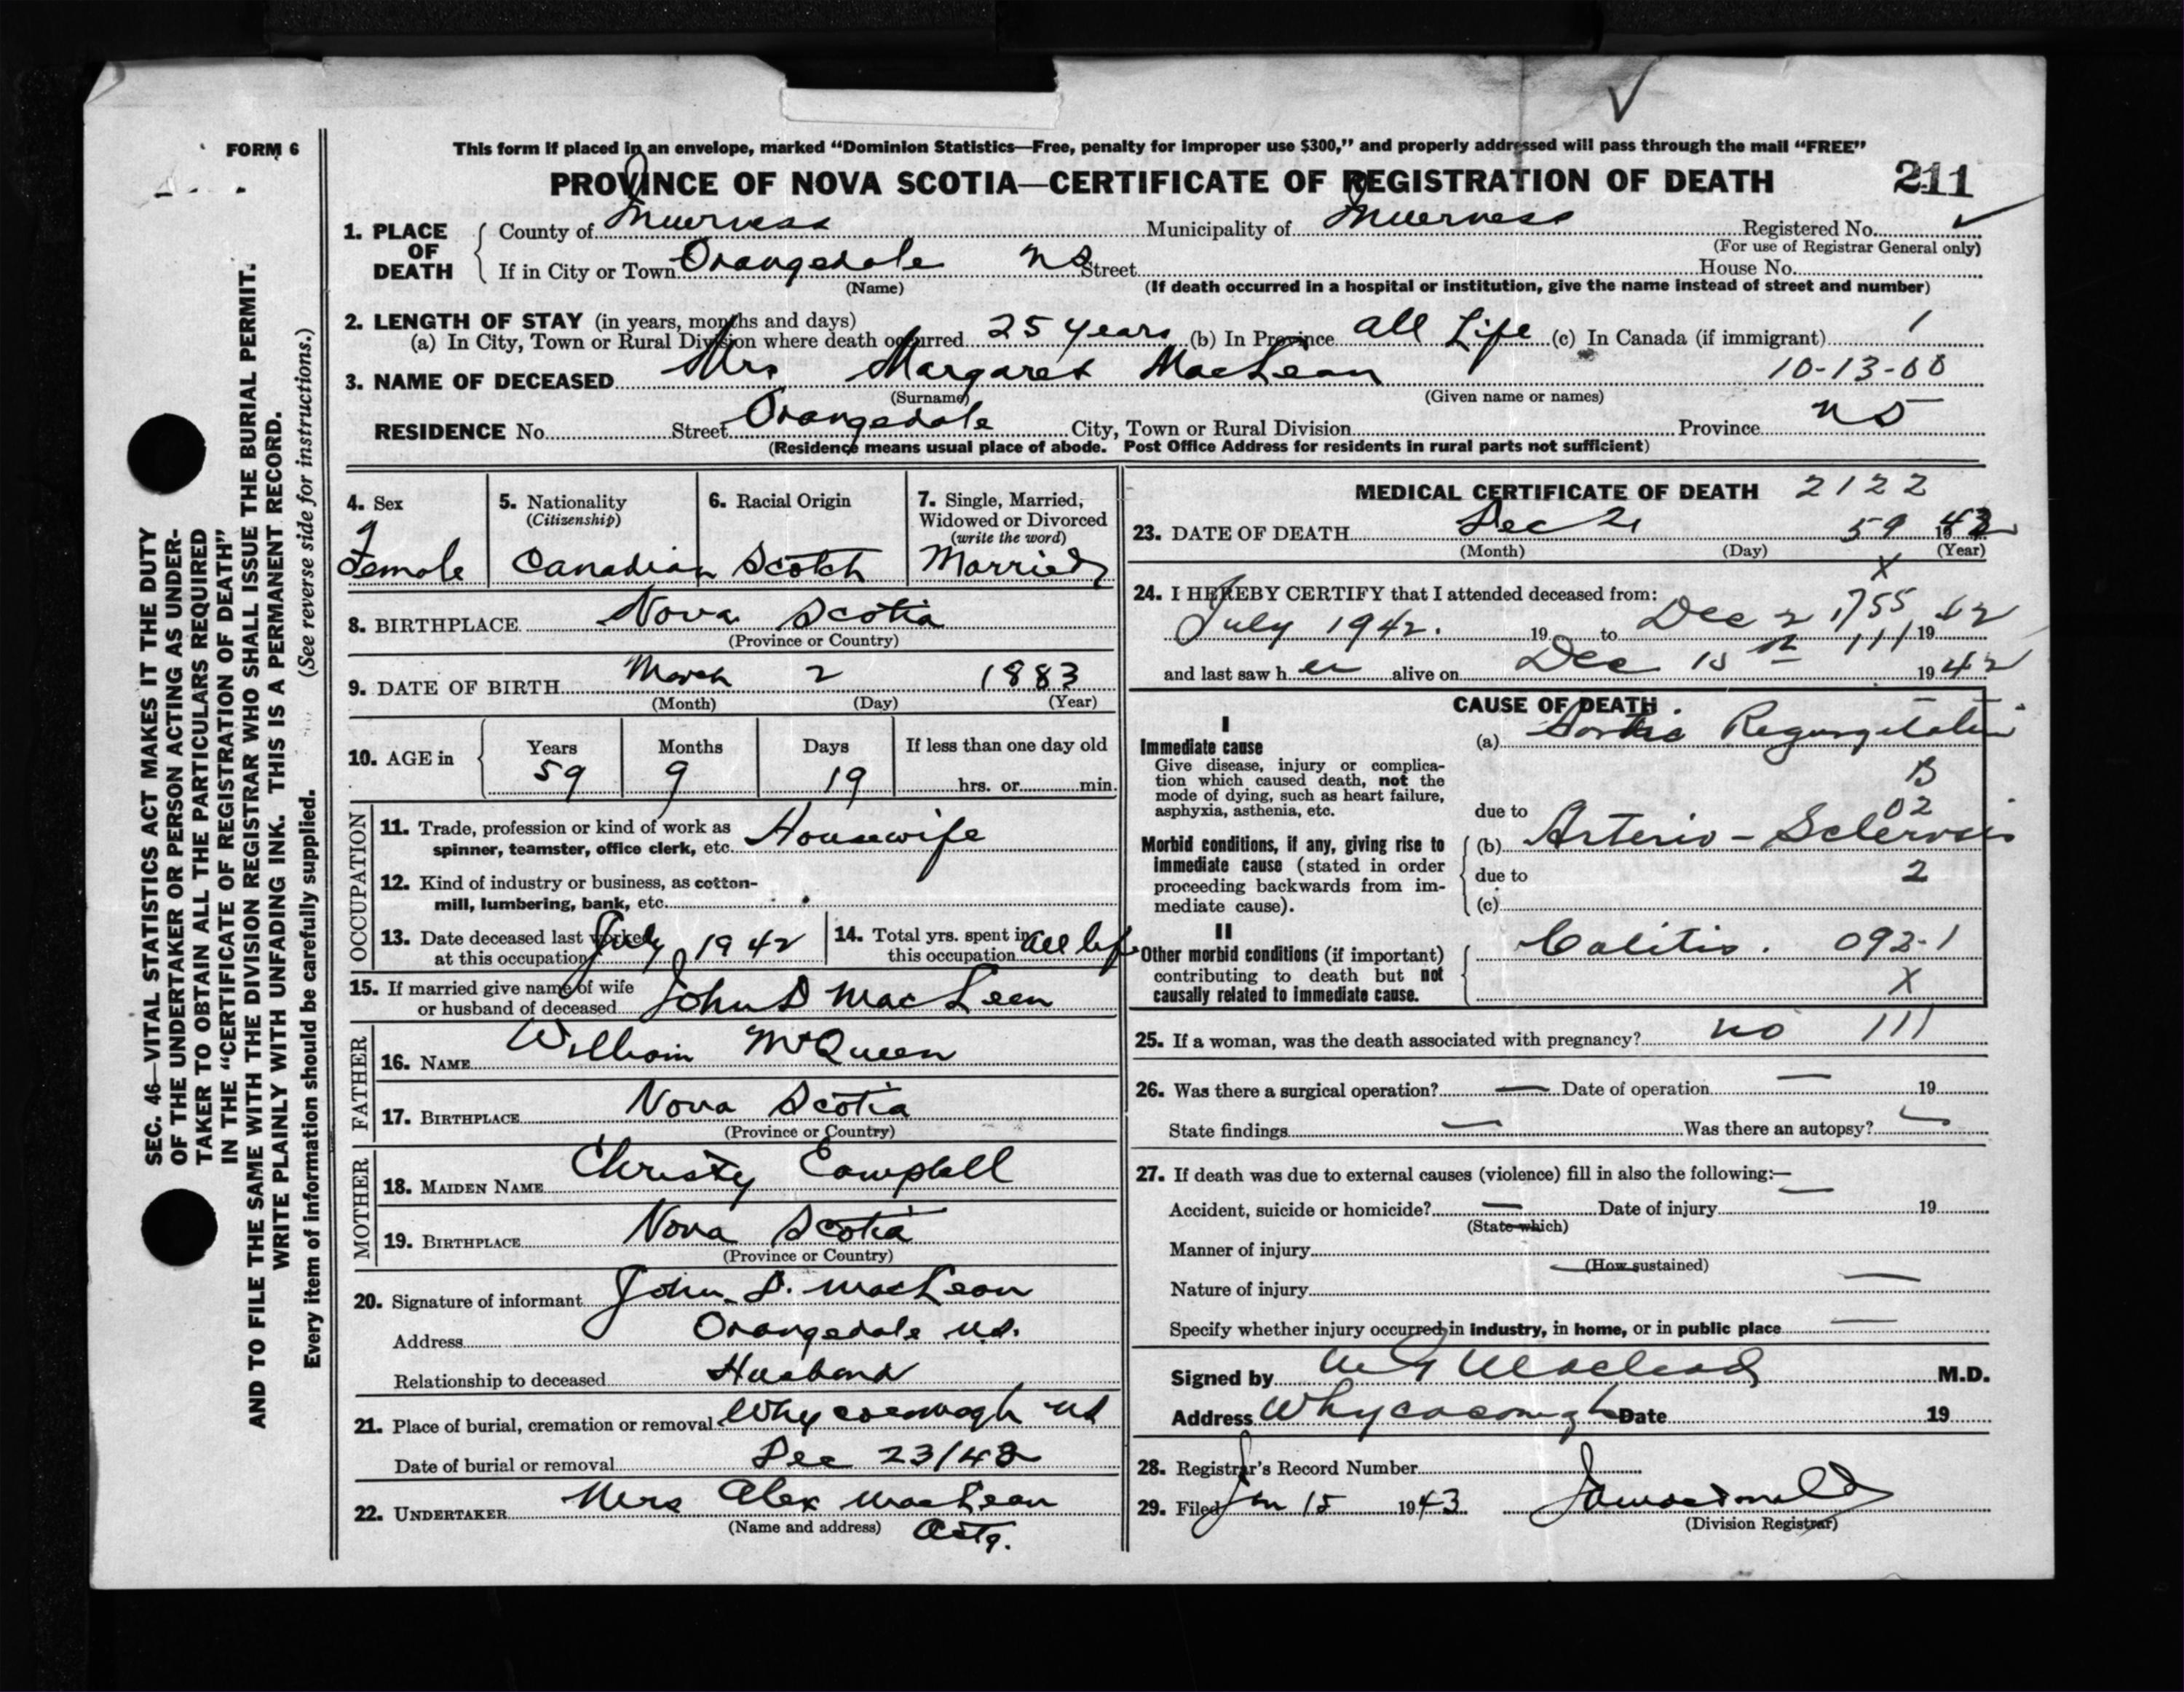 FORM 6
This form if placed in an envelope, marked “Dominion Statistics—Free, penalty for improper use $300,” and properly addressed will pass through the mail “FREE”
PROVINCE OF NOVA SCOTIA—CERTIFICATE OF REGISTRATION OF DEATH 211
1. PLACE OF DEATH County of Inverness Municipality of Inverness Registered No.
(For use of Registrar General only)
If in City or Town Orangedale NS Street House No.
(Name) (If death occurred in a hospital or institution, give the name instead of street and number)
2. LENGTH OF STAY (in years, months and days)
(a) In City, Town or Rural Division where death occurred 25 years (b) In Province all Life (c) In Canada (if immigrant) 1
3. NAME OF DECEASED Mrs Margaret MacLean 10-13-00
(Surname) (Given name or names)
RESIDENCE No. Street Orangedale City, Town or Rural Division Province NS
(Residence means usual place of abode. Post Office Address for residents in rural parts not sufficient)
4. Sex 5. Nationality 6. Racial Origin 7. Single, Married,
(Citizenship) Widowed or Divorced
(write the word)
Female Canadian Scotch Married
8. BIRTHPLACE Nova Scotia
(Province or Country)
9. DATE OF BIRTH March 2 1883
(Month) (Day) (Year)
10. AGE in Years Months Days If less than one day old
59 9 19 hrs. or min.
OCCUPATION
11. Trade, profession or kind of work as
spinner, teamster, office clerk, etc. Housewife
12. Kind of industry or business, as cotton-
mill, lumbering, bank, etc.
13. Date deceased last worked
at this occupation July 1942
14. Total yrs. spent in
this occupation all life
15. If married give name of wife
or husband of deceased John D MacLean
FATHER
16. NAME William McQueen
17. BIRTHPLACE Nova Scotia
(Province or Country)
MOTHER
18. MAIDEN NAME Christy Campbell
19. BIRTHPLACE Nova Scotia
(Province or Country)
20. Signature of informant John D. MacLean
Address Orangedale N.S.
Relationship to deceased Husband
21. Place of burial, cremation or removal Whycocomagh NS
Date of burial or removal Dec 23/42
22. UNDERTAKER Mrs Alex MacLean
(Name and address) Actg.
MEDICAL CERTIFICATE OF DEATH 2122
23. DATE OF DEATH Dec 21 59 1942
(Month) (Day) (Year)
X
24. I HEREBY CERTIFY that I attended deceased from:
July 1942. 19 to Dec 2 1755 1942
and last saw h er alive on Dec 15th 111 1942
CAUSE OF DEATH
I
Immediate cause (a) Aortic Regurgitation
Give disease, injury or complica-
tion which caused death, not the
mode of dying, such as heart failure,
asphyxia, asthenia, etc.
B
due to 02
Morbid conditions, if any, giving rise to
immediate cause (stated in order
proceeding backwards from im-
mediate cause).
(b) Arterio-Sclerosis
due to 2
(c)
II
Other morbid conditions (if important)
contributing to death but not
causally related to immediate cause.
Colitis. 092-1
X
25. If a woman, was the death associated with pregnancy? no 111
26. Was there a surgical operation? — Date of operation — 19
State findings — Was there an autopsy? —
27. If death was due to external causes (violence) fill in also the following:—
Accident, suicide or homicide? — Date of injury — 19
(State which)
Manner of injury
(How sustained)
Nature of injury —
Specify whether injury occurred in industry, in home, or in public place —
Signed by MacLeod M.D.
Address Whycocomagh Date 19
28. Registrar's Record Number
29. Filed Jan 15 1943 MacDonald
(Division Registrar)
SEC. 46—VITAL STATISTICS ACT MAKES IT THE DUTY
OF THE UNDERTAKER OR PERSON ACTING AS UNDER-
TAKER TO OBTAIN ALL THE PARTICULARS REQUIRED
IN THE “CERTIFICATE OF REGISTRATION OF DEATH”
AND TO FILE THE SAME WITH THE DIVISION REGISTRAR WHO SHALL ISSUE THE BURIAL PERMIT.
WRITE PLAINLY WITH UNFADING INK. THIS IS A PERMANENT RECORD.
Every item of information should be carefully supplied. (See reverse side for instructions.)